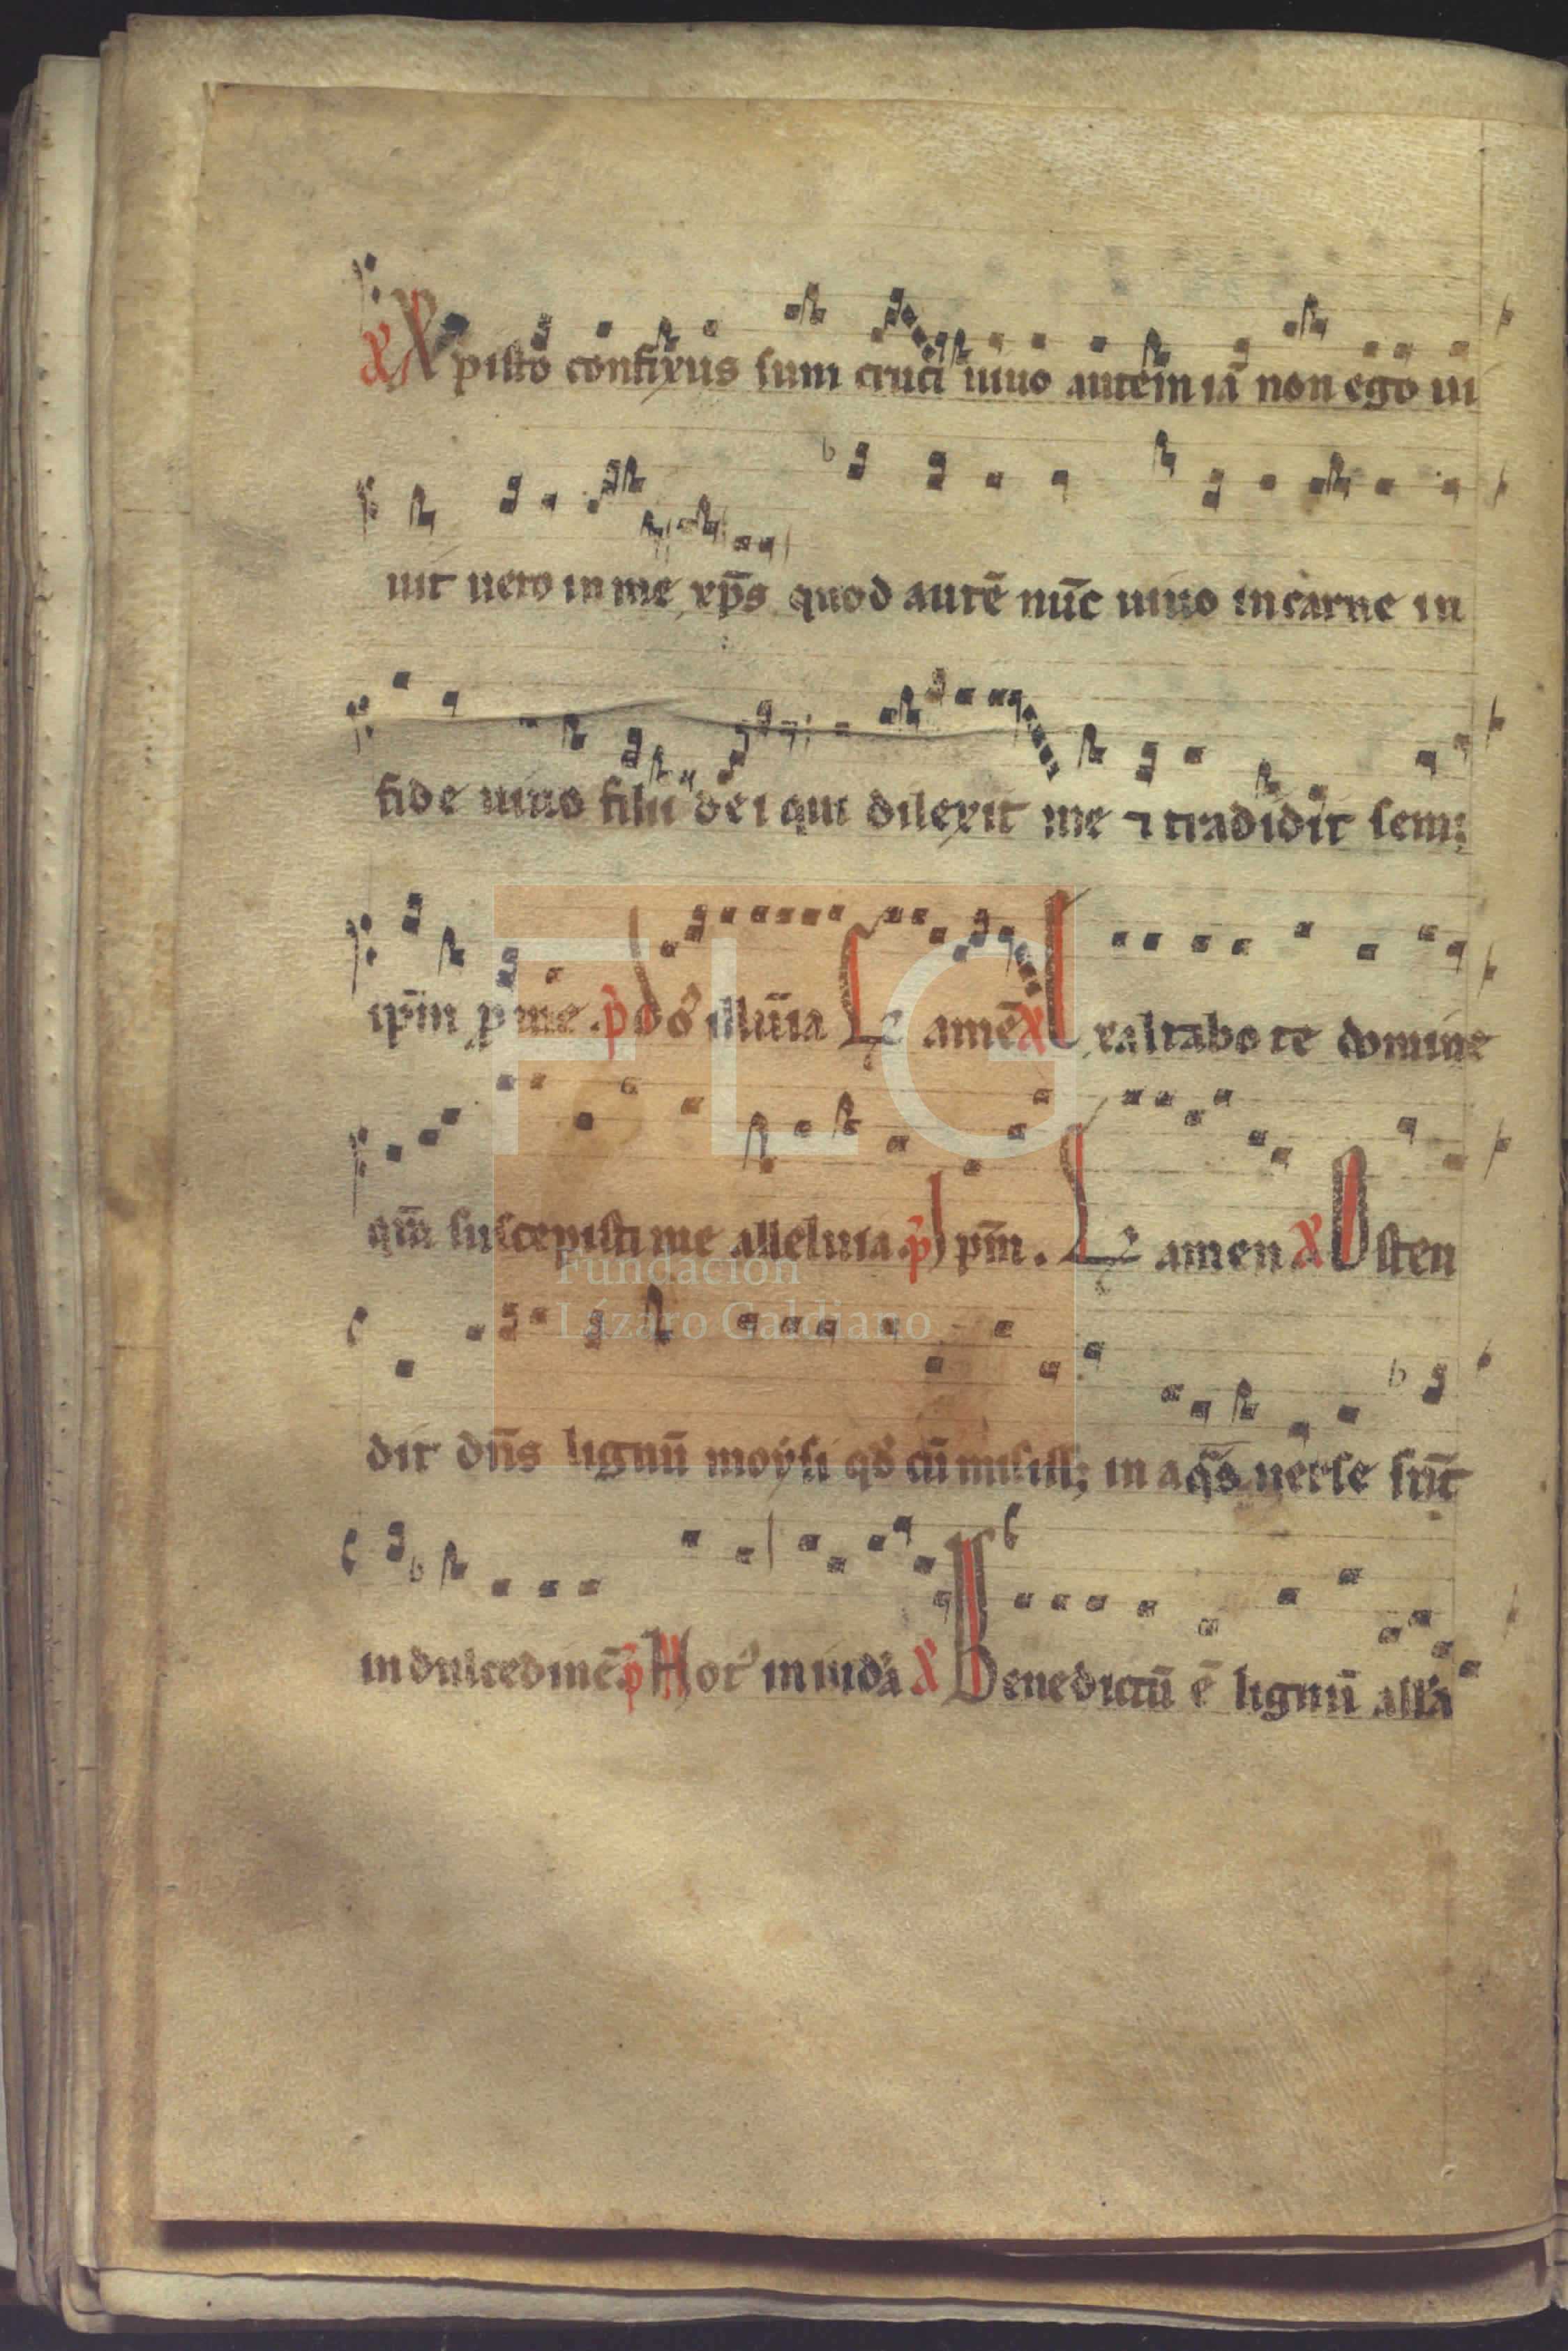 Xpisto confixus sum cruci uiuo autem iā non ego ui
uit uero in me xp̄s quod autē nūc uiuo in carne in
fide uiuo filii dei qui dilexit me ⁊ tradidit sem;
ip̄m p me. p̄ Do᷒ illūia amē Exaltabo te domine
qm̄ suscepisti me alleluia. p̄ I pm̄. amen Osten
dit dn̄s lignū moysi qd̄ cū misiss; in aq̄s uerse sūt
in dulcedinē p̄ Not᷒ in iudā Benedictū ē lignū all'a
FLG
Fundación
Lázaro Galdiano